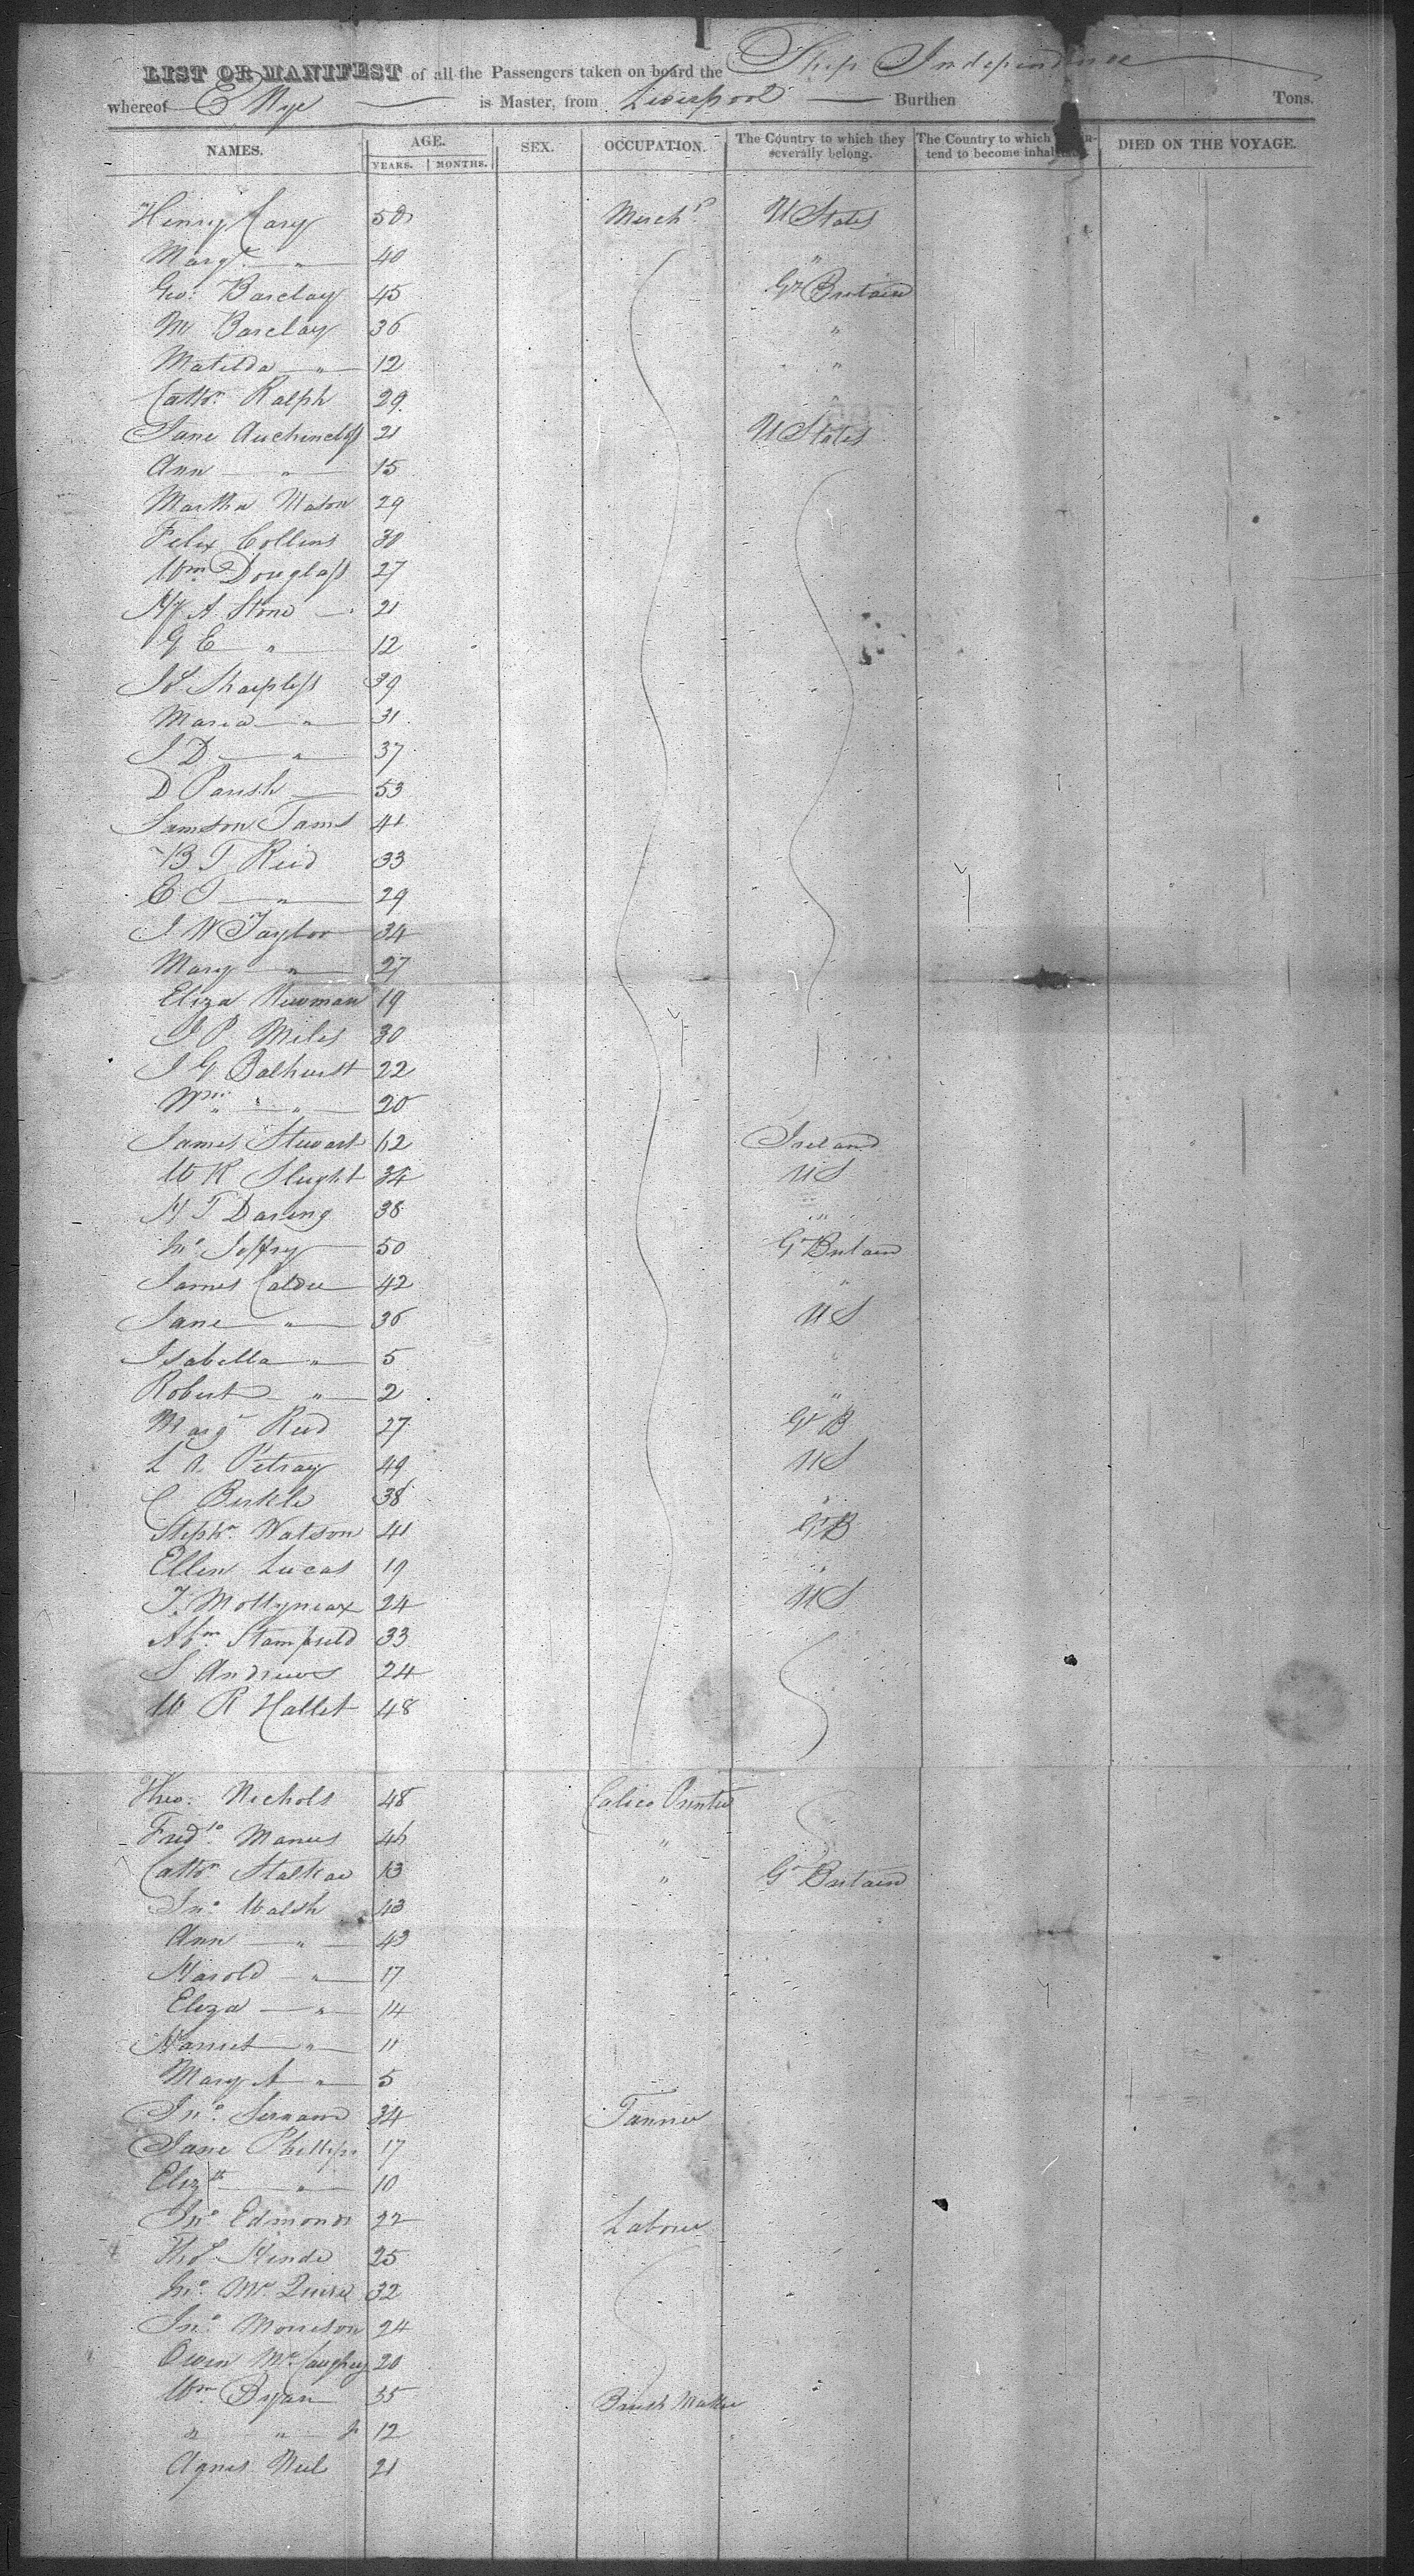 LIST OR MANIFEST of all the Passengers taken on board the Ship Independence
whereof E Nye is Master, from Liverpool Burthen Tons.
NAMES. AGE. SEX. OCCUPATION. The Country to which they severally belong. The Country to which in- tend to become DIED ON THE VOYAGE.
YEARS. MONTHS.
Henry Cary 50 Mercht U States
Margt " 40 "
Geo: Barclay 45 Gt Britain
M Barclay 36 "
Matilda " 12 "
Cathn Ralph 29 "
Jane Auchincloss 21 U States
Ann " 15
Martha Maton 29
Felix Collins 30
Wm Douglass 27
Hy A. Stone 21
G E " 12
Js Sharpless 39
Maria " 31
J D " 37
D Parish 53
Samson Tams 41
B T Reid 33
E T " 29
J W Taylor 34
Mary " 27
Eliza Newman 19
J P. Miles 30
J G Balhurst 22
Wm " " 20
James Stewart 62 Ireland
W R Slught 34 US
H T Daring 38 "
Jno Jeffry 50 Gt Britain
James Calder 42 "
Jane " 36 US
Isabella " 5
Robert " 2 "
Margt Reid 27 Gt B
L A. Petray 49 US
C Birkle 38 "
Stephn Watson 41 Gt B
Ellen Lucas 19 "
T. Mollyneax 24 US
Abm Stampield 33
S Andrews 24
W R Hallet 48
Theo: Nichols 48 Calico Printer
Fredk Manus "
Cathn 13 " Gt Britain
Jno Walsh 43
Ann " 43
Harold " 17
Eliza " 14
Harriet " 11
Mary A " 5
Jno 34 Tanner
Jane Phillips 17
Elizth " 10
Jno Edmonds 22 Labourer
Thos Hinde 25
Jno Mc 32
Jno Morrison 24
Owen Mc Caughey 20
Wm Bryan 35 Brush Maker
" " Jr 12
Agnes Neil 21